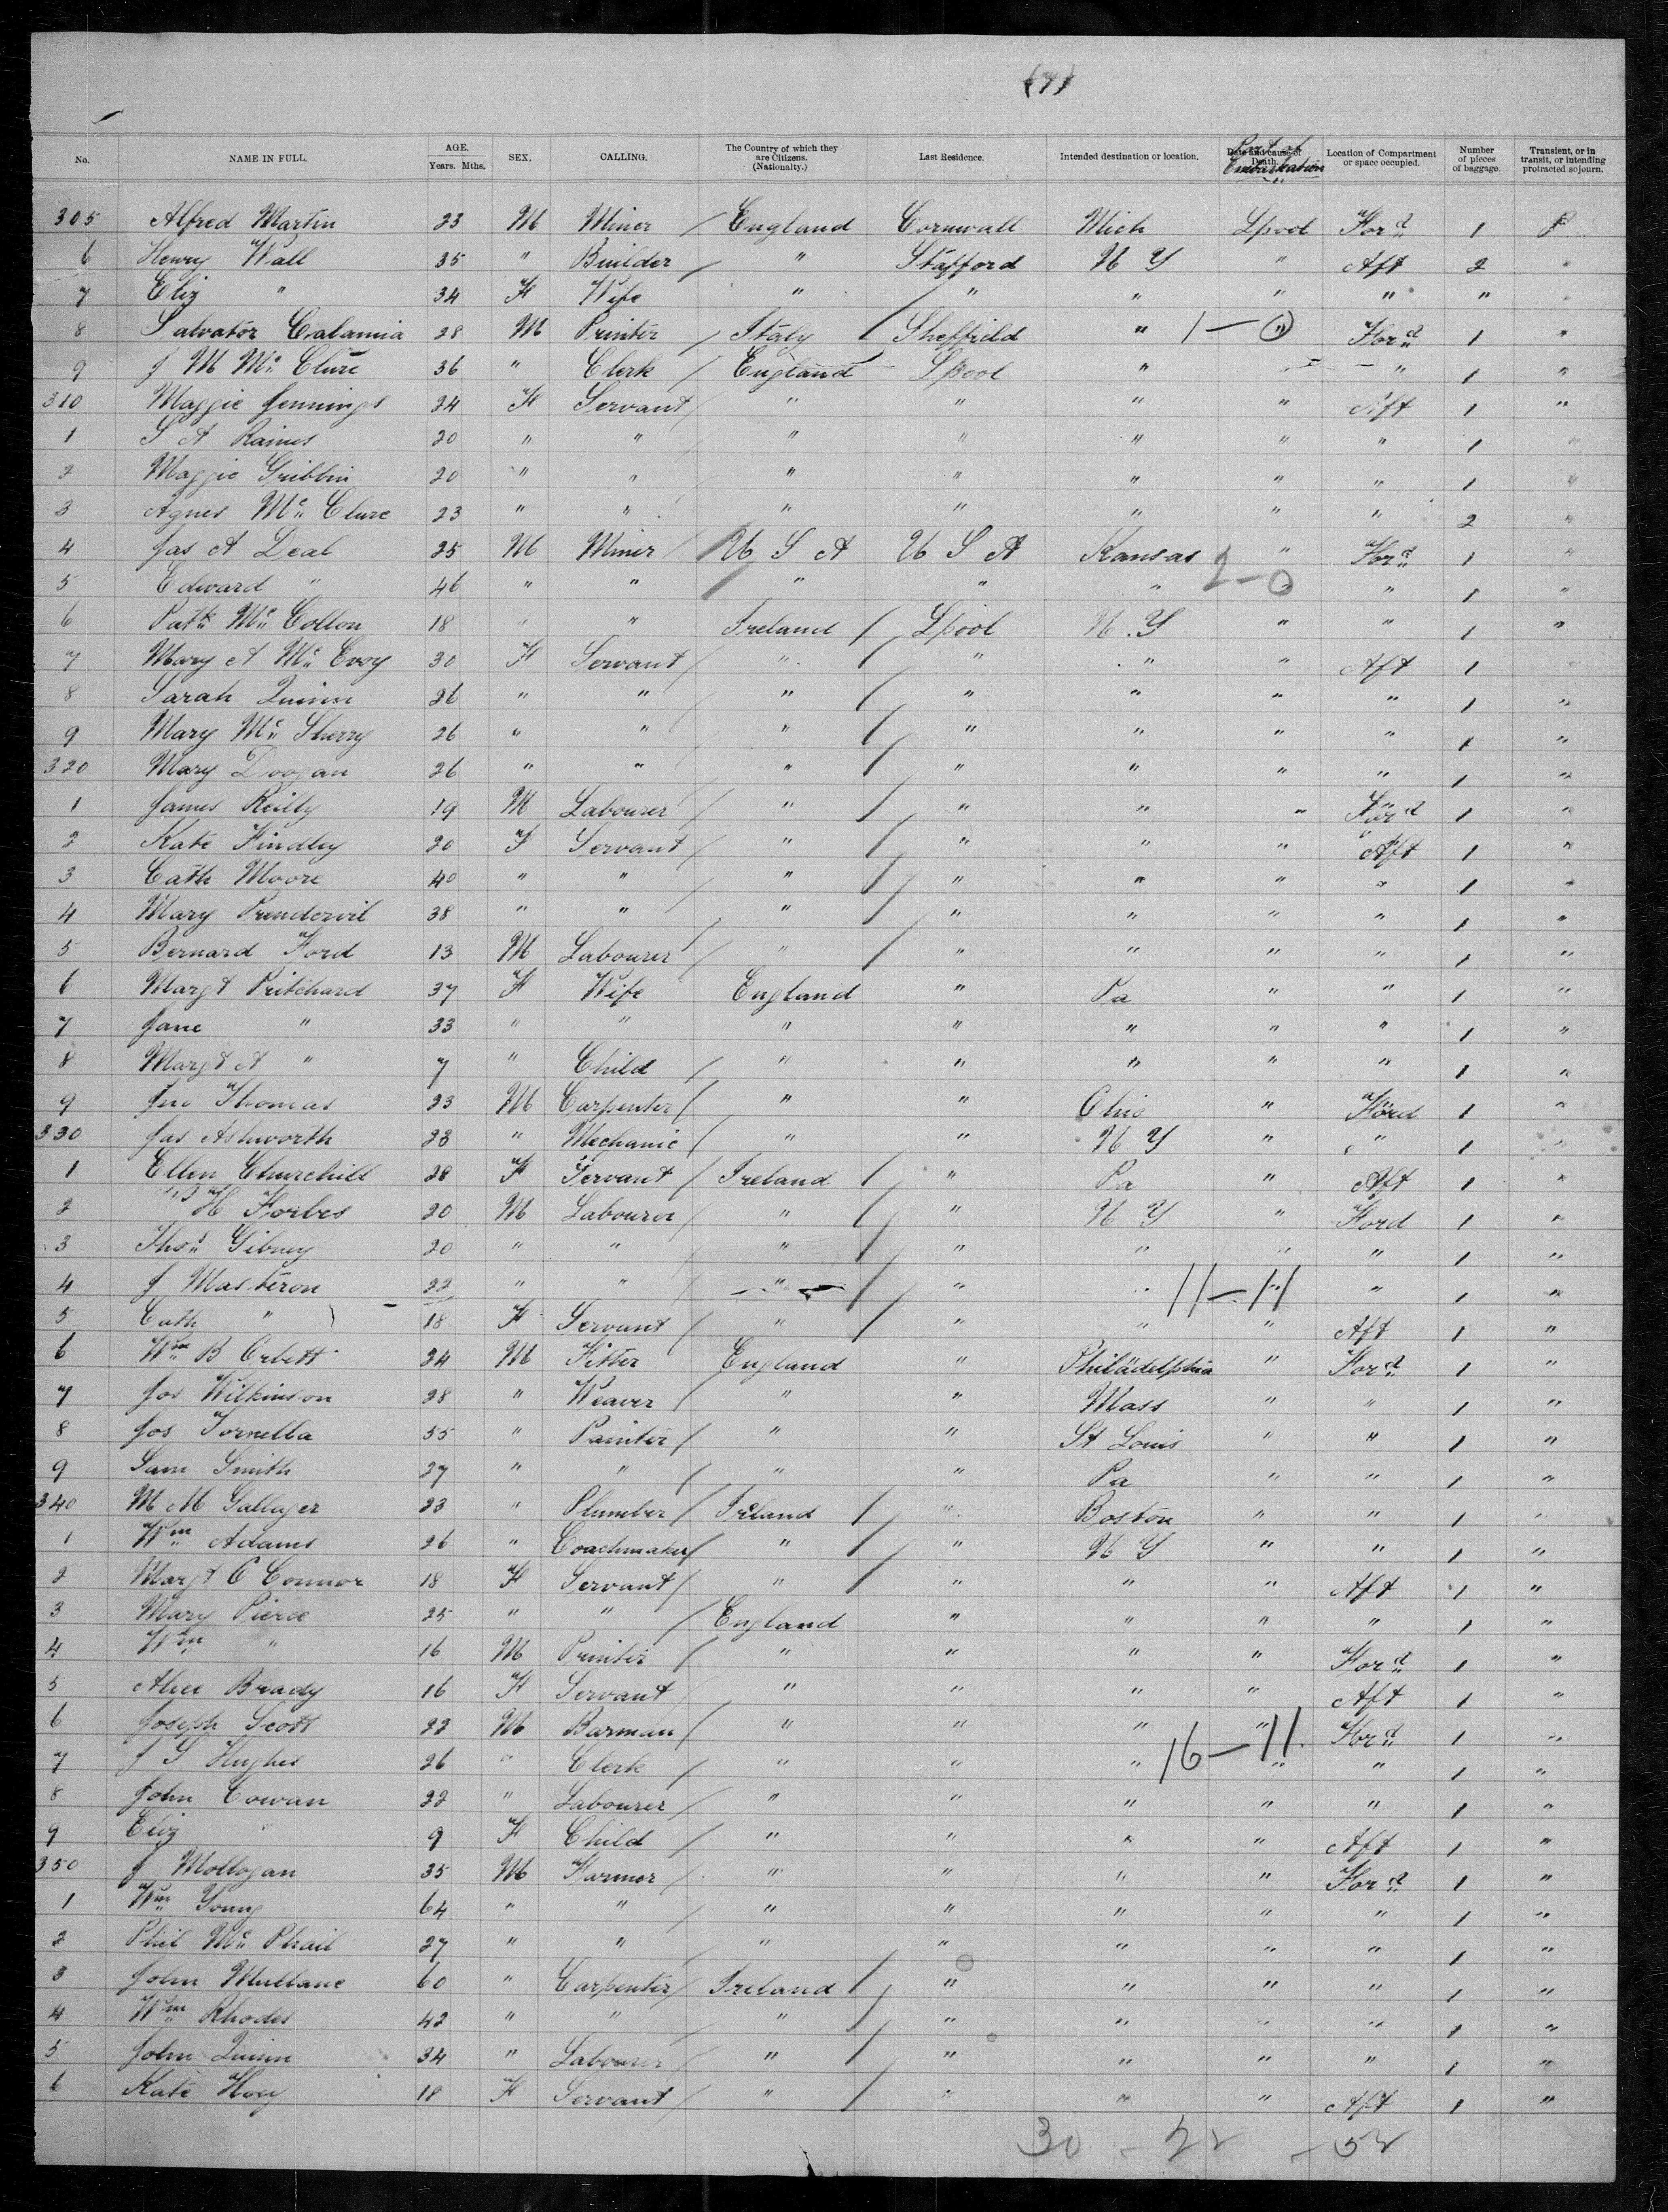 (7)
No. NAME IN FULL. AGE. Years. Mths. SEX. CALLING. The Country of which they are Citizens. (Nationality.) Last Residence. Intended destination or location. Date and cause of Death. Port of Embarkation Location of Compartment or space occupied. Number of pieces of baggage. Transient, or in transit, or intending protracted sojourn.
305 Alfred Martin 23 M Miner / England Cornwall Mich Lpool For'd 1 P
6 Henry Wall 35 " Builder / " Stafford N Y " Aft 2 "
7 Eliz " 34 F Wife " " " " " " "
8 Salvator Calamia 28 M Printer / Italy / Sheffield " 1 — 0 " For'd 1 "
9 J M Mc Clure 36 " Clerk / England Lpool " " " 1 "
310 Maggie Jennings 24 F Servant / " " " " Aft 1 "
1 S A Raines 20 " " " " " " " 1 "
2 Maggie Gribbin 20 " " " " " " " 1 "
3 Agnes Mc Clure 23 " " " " " " " 2 "
4 Jas A Deal 25 M Miner / U S A U S A Kansas " For'd 1 "
5 Edward " 46 " " / " " " 2 — 0 " " 1 "
6 Patk Mc Collon 18 " " Ireland / Lpool N Y " " 1 "
7 Mary A Mc Evoy 30 F Servant / " / " " " Aft 1 "
8 Sarah Quinn 26 " " " / " " " " 1 "
9 Mary Mc Sherry 26 " " " / " " " " 1 "
320 Mary Doogan 26 " " " / " " " " 1 "
1 James Reilly 19 M Labourer / " / " " " For'd 1 "
2 Kate Findley 20 F Servant / " / " " " Aft 1 "
3 Cath Moore 40 " " / " / " " " " 1 "
4 Mary Prindervil 38 " " / " / " " " " 1 "
5 Bernard Ford 13 M Labourer / " / " " " " 1 "
6 Margt Pritchard 37 F Wife England " Pa " " 1 "
7 Jane " 33 " " " " " " " 1 "
8 Margt A " 7 " Child / " " " " " 1 "
9 Jno Thomas 23 M Carpenter / " " Ohio " Ford 1 "
330 Jas Ashworth 28 " Mechanic / " " N Y " " 1 "
1 Ellen Churchill 28 F Servant / Ireland / " Pa " Aft 1 "
2 H Forbes 20 M Labourer / " / " N Y " Ford 1 "
3 Thos Gibney 20 " " / " / " " " " 1 "
4 J Masteron 22 " " / " / " " 11 — 11 " " 1 "
5 Cath " 18 F Servant / " / " " " Aft 1 "
6 Wm B Orbett 24 M Fitter England " Philadelphia " For'd 1 "
7 Jos Wilkinson 28 " Weaver / " " Mass " " 1 "
8 Jos Tornella 55 " Painter / " " St Louis " " 1 "
9 Sam Smith 27 " " / " " Pa " " 1 "
340 M M Gallager 23 " Plumber / Ireland / " Boston " " 1 "
1 Wm Adams 26 " Coachmaker / " / " N Y " " 1 "
2 Margt O Connor 18 F Servant / " / " " " Aft 1 "
3 Mary Pierce 25 " " / England " " " " 1 "
4 Wm " 16 M Printer / " " " " For'd 1 "
5 Alice Brady 16 F Servant / " " " " Aft 1 "
6 Joseph Scott 22 M Barman / " " " " For'd 1 "
7 J S Hughes 26 " Clerk / " " " 16 — 11 " " 1 "
8 John Cowan 22 " Labourer / " " " " " 1 "
9 Eliz " 9 F Child / " " " " Aft 1 "
350 J Mollogan 35 M Farmer / " " " " For'd 1 "
1 Wm Young 64 " " / " " " " " 1 "
2 Phil Mc Phail 27 " " / " " " " " 1 "
3 John Mullane 60 " Carpenter / Ireland / " " " " 1 "
4 Wm Rhodes 42 " " / " / " " " " 1 "
5 John Quinn 34 " Labourer / " / " " " " 1 "
6 Kate Hoey 18 F Servant / " / " " " Aft 1 "
30 - 22 - 52